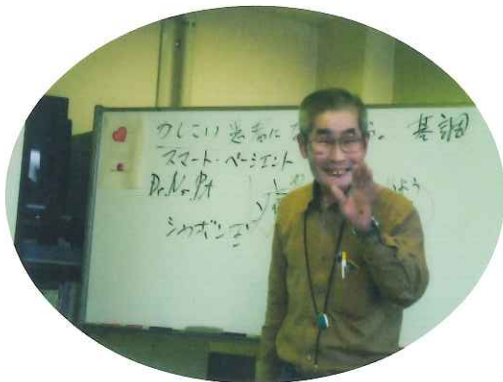 かしこい患者に 基調
スマート・ペーシェント
Dr. Nr. Pt
シャボン玉
よう